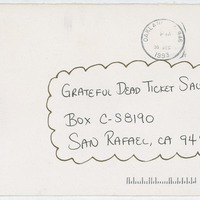 OAKLAND
PM
1993
GRATEFUL DEAD TICKET SAL
BOX C-S8190
SAN RAFAEL, CA 94